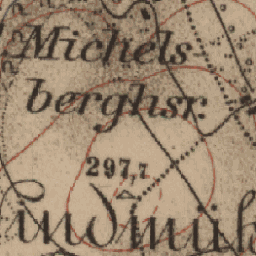 Michels
berghsr.
297,7